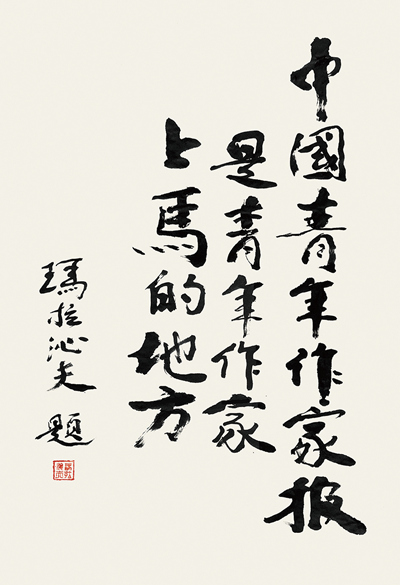 中國青年作家报
是青年作家
上馬的地方
瑪拉沁夫
題